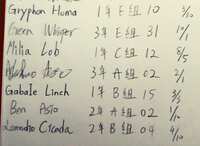 Gryphon Huma 1年E組 10 3/10
Green Whisper 3年E組 31 17/1
Milia Lob 1年C組 12 8/5
3年A組 02 2/1
Gabale Linch 1年B組 15 3/3
Ben Asto 2年A組 02 1/10
Leonardo Cicada 2年B組 04 4/10